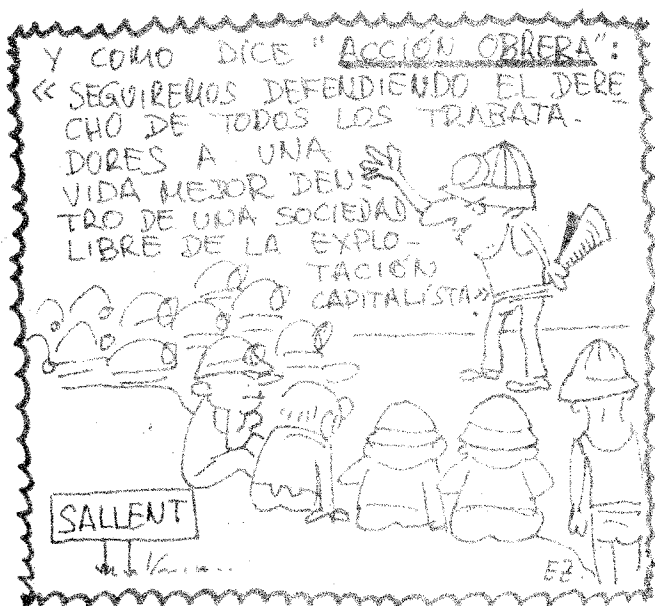 Y COMO DICE "ACCIÓN OBRERA":
« SEGUIREMOS DEFENDIENDO EL DERE
CHO DE TODOS LOS TRABAJA-
DORES A UNA
VIDA MEJOR DEN-
TRO DE UNA SOCIEDAD
LIBRE DE LA EXPLO-
TACIÓN
CAPITALISTA»
SALLENT
EZ.